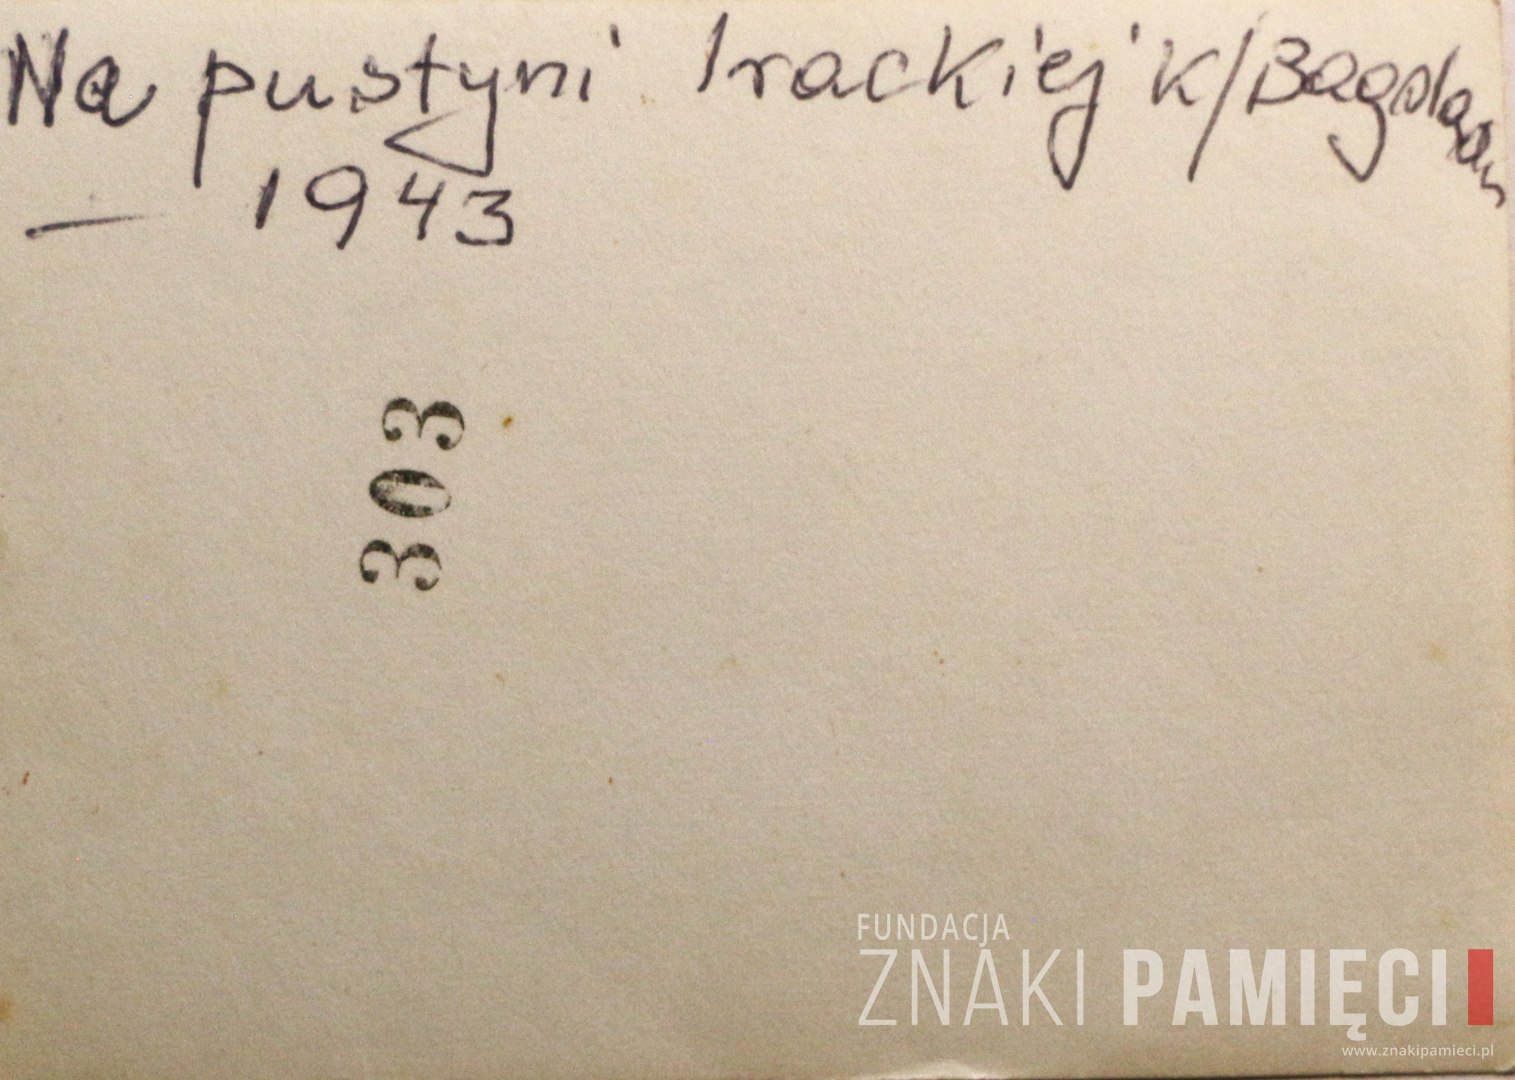 Na pustyni Irackiej k/Bagdadu
— 1943
303
FUNDACJA
ZNAKI PAMIĘCI
www.znakipamieci.pl